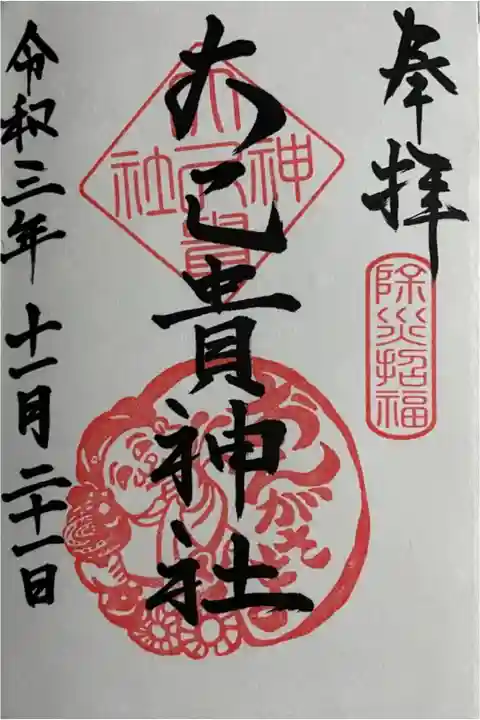 奉拝
除災招福
大己貴神社
大己貴
神社
令和三年十一月二十一日